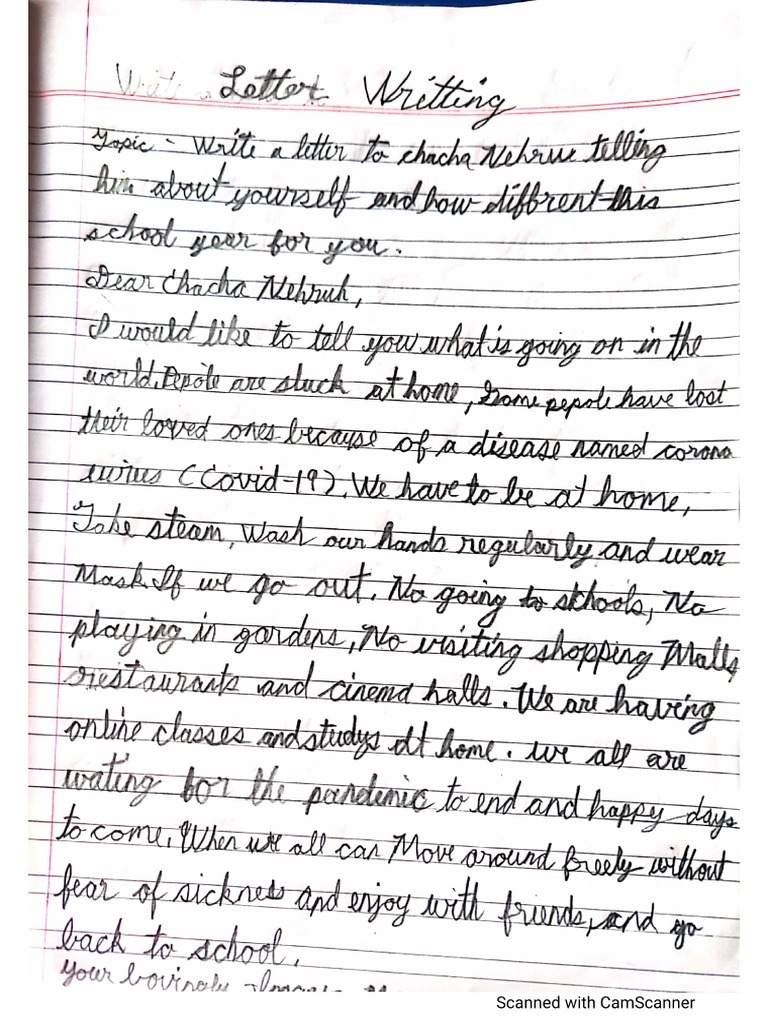 Letter Writting
Topic - Write a letter to chacha Nehrue telling
him about yourself and how diffrent this
school year for you.
Dear Chacha Nehruh,
I would like to tell you what is going on in the
world. Pepole are stuck at home, Some pepole have lost
their loved ones because of a disease named corona
virus (Covid-19). We have to be at home,
Take steam, Wash our hands regularly and wear
Mask If we go out. No going to schools, No
playing in gardens, No visiting shopping Malls,
restaurants and cinema halls. We are having
online classes and studys at home. we all are
wating for the pandemic to end and happy days
to come. When we all can Move around freely without
fear of sickness and enjoy with friends, and go
back to school.
Your lovingly
Scanned with CamScanner